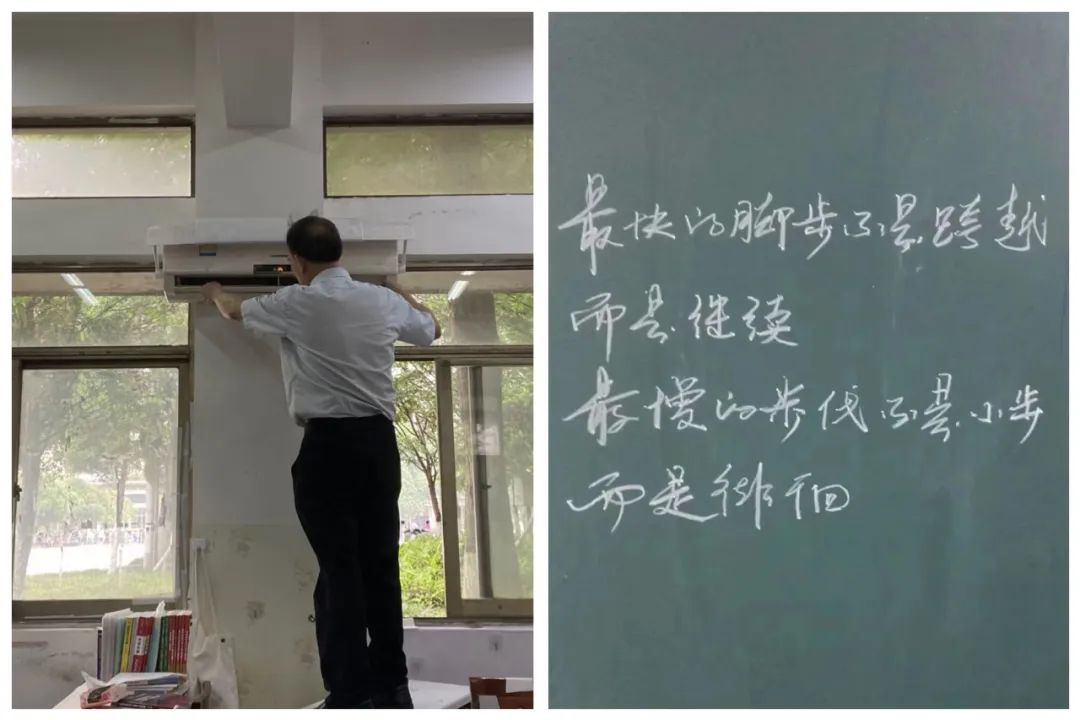 最快的脚步不是跨越
而是继续
最慢的步伐不是小步
而是徘徊